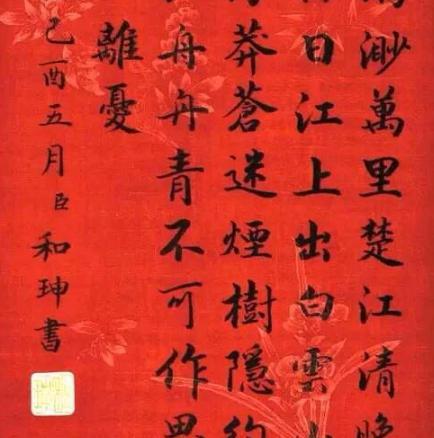 渺萬里楚江清晚
日江上出白雲
莽蒼迷煙樹隱約
舟舟青不可作思
離憂
己酉五月臣和珅書